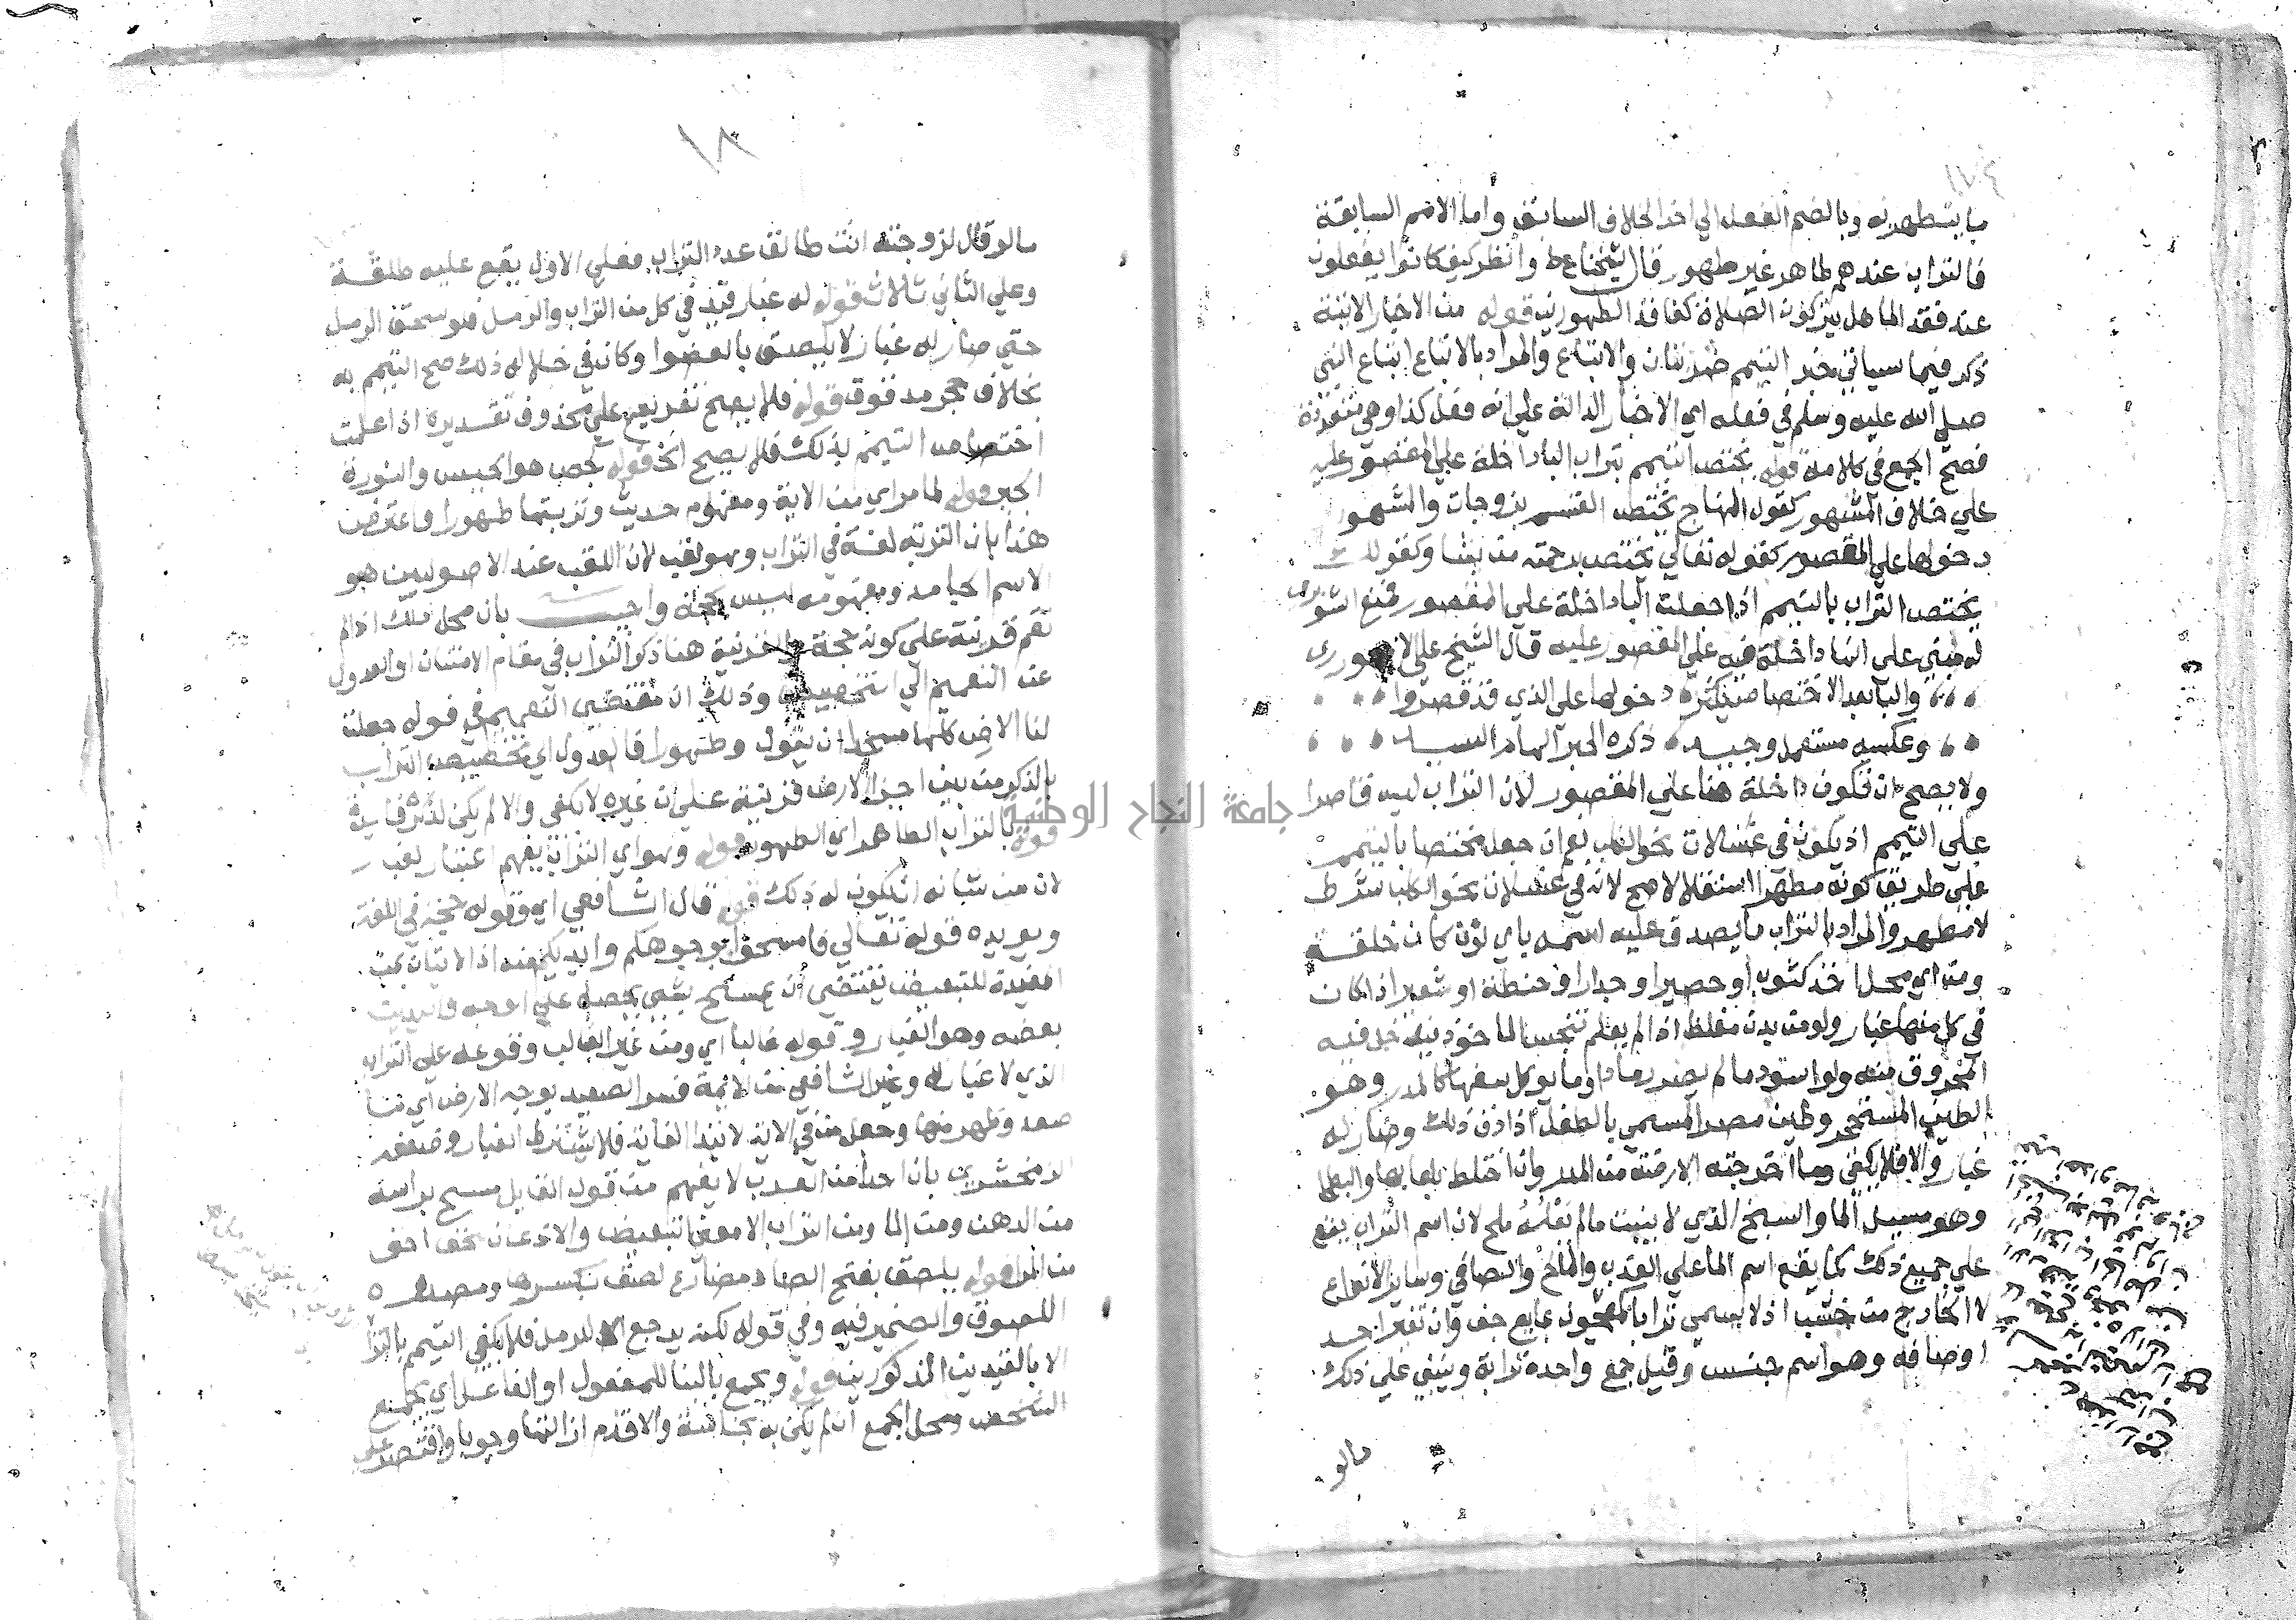 ما يتطهر به وبالضم الفعل الي اخر الخلاف السابق واما الامم السابقة
فالتراب عندهم طاهر غير طهور قال شيخنا ع ط وانظر كيف كانوا يفعلون
عند فقد الما هل يتركون الصلاة كفاقد الطهورين قوله من الاخبار الاتية
ذكر فيما سياتي خبر التيمم ضربتان والاتباع والمراد بالاتباع اتباع النبي
صلي الله عليه وسلم في فعله اي الاخبار الدالة علي انه فعل كذا وهي متعددة
فصح الجمع في كلامه قوله يختص التيمم بتراب البا داخلة علي المقصور عليه
علي خلاف المشهور كقول المنهاج يختص القسم بزوجات والمشهور
دخولها علي المقصور كقوله تعالي يختص برحمته من يشا وكقولك
يختص التراب بالتيمم اذا جعلت البا داخلة علي المقصور فمنع الشوبري
له مبني علي انها داخلة فيه علي المقصور عليه قال الشيخ علي الاجهوري
والبا بعد الاختصاص يكثر دخولها علي الذي قد قصروا
وعكسه مستعمل وجيد ذكره الحبر الهمام السيد
ولا يصح ان تكون داخلة هنا علي المقصور لان التراب ليس قاصرا
علي التيمم اذ يكون في غسلات نحو الكلب نعم ان جعل مختصا بالتيمم
علي طريق كونه مطهرا استقلالا صح لانه في غسلات نحو الكلب شرط
لا مطهر والمراد بالتراب ما يصدق عليه اسمه باي لون كان خلقة
ومن اي محل اخذ كثوب او حصير او جدار او حنطة او شعير اذا كان
في كل منها غبار ولو من بدن مغلظ اذا لم يعلم تنجس الماخوذ منه دخل فيه
المحروق منه ولو اسود ما لم يصر رمادا وما يوكل سفها كالمدر وهو
الطين المستحجر وطين مصر المسمي بالطفل اذا دق ذلك وصار له
غبار والا فلا يكفي وما اخرجته الارضة من المدر وان اختلط بلعابها والبطحا
وهو مسيل الما والسبخ الذي لا ينبت ما لم يعله ملح لان اسم التراب يقع
علي جميع ذلك كما يقع اسم الما علي العذب والمالح والصافي وساير الانواع
لا الخارج من خشب اذ لا يسمي ترابا كمعجون بمايع جف وان تغير احد
اوصافه وهو اسم جنس وقيل جمع واحده ترابة وينبني علي ذلك
مالو
١٨
مالو قال لزوجته انت طالق عدد التراب فعلي الاول يقع عليه طلقة
وعلي الثاني ثلاث قوله له غبار قيد في كل من التراب والرمل فلو سحق الرمل
حتي صار له غبار لا يلصق بالعضو او كان في خلاله ذلك صح التيمم به
بخلاف حجر مدقوق قوله فلا يصح تفريع علي محذوف تقديره اذا علمت
اختصاص التيمم بذلك فلا يصح الخ قوله بجص هو الجبس والنورة
الجير قوله لما مر اي من الاية ومفهوم حديث وتربتها طهورا واعترض
هذا بان التربة لغة في التراب وهو لقب لان اللقب عند الاصوليين هو
الاسم الجامد ومفهومه ليس بحجة واجيب بان محل ذلك اذا لم
تقم قرينة علي كونه حجة والقرينة هنا ذكر التراب في مقام الامتنان او العدول
عن التعميم الي التخصيص وذلك ان مقتضي التعميم في قوله جعلت
لنا الارض كلها مسجدا ان يقول وطهورا فالعدول اي تخصيص التراب
بالذكر من بين اجزا الارض قرينة علي ان غيره لا يكفي والا لم يكن لذكره فايدة
قوله بالتراب الطاهر اي الطهور قوله وهو اي التراب يفهم اعتبار لغب
لان من شانه ان يكون له ذلك قوله قال الشافعي اي وقوله حجة في اللغة
ويويده قوله تعالي فامسحوا بوجوهكم وايديكم منه اذ الاتيان بمن
المفيدة للتبعيض يقتضي ان يمسح بشي يحصل علي الوجه واليدين
بعضه وهو الغبار وقوله غالبا اي ومن غير الغالب وقوعه علي التراب
الذي لا غبار له وغير الشافعي من الايمة فسر الصعيد بوجه الارض اي ما
صعد وظهر منها وجعل من في الاية لابتدا الغاية فلا يشترط الغبار وضعفه
الزمخشري بان احدا من العرب لا يفهم من قول القايل مسح براسه
من الدهن ومن الما ومن التراب الا معني التبعيض والاذعان للحق احق
من المرا قوله يلصق بفتح الصاد مضارع لصق بكسرها ومصدره
اللصوق والضمير فيه وفي قوله لكنه يرجع للرمل فلا يكفي التيمم بالتراب
الا بالقيدين المذكورين قوله ويجمع بالبنا للمفعول او الفاعل اي يجمع
الشخص ومحل الجمع ان لم يكن به نجاسة والا قدم ازالتها وجوبا واقتصر علي
جامعة النجاح الوطنية